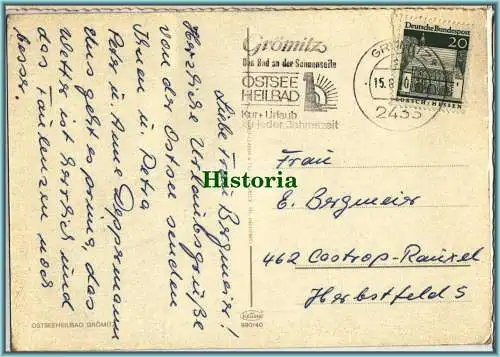 Grömitz
Das Bad an der Sonnenseite
OSTSEE
HEILBAD
Kur + Urlaub
zu jeder Jahreszeit
Deutsche Bundespost
20
LORSCH/HESSEN
15.8
2433
Liebe Frau Bergmeier!
Herzliche Urlaubsgrüße
von der Ostsee senden
Ihnen u. Petra
Peter u. Anne Deppermann
Uns geht es prima, das
Wetter ist herrlich und
das Faulenzen noch
besser.
Historia
Frau
E. Bergmeier
462 Castrop-Rauxel
Herbstfeld 5
OSTSEEHEILBAD GRÖMITZ
990/40